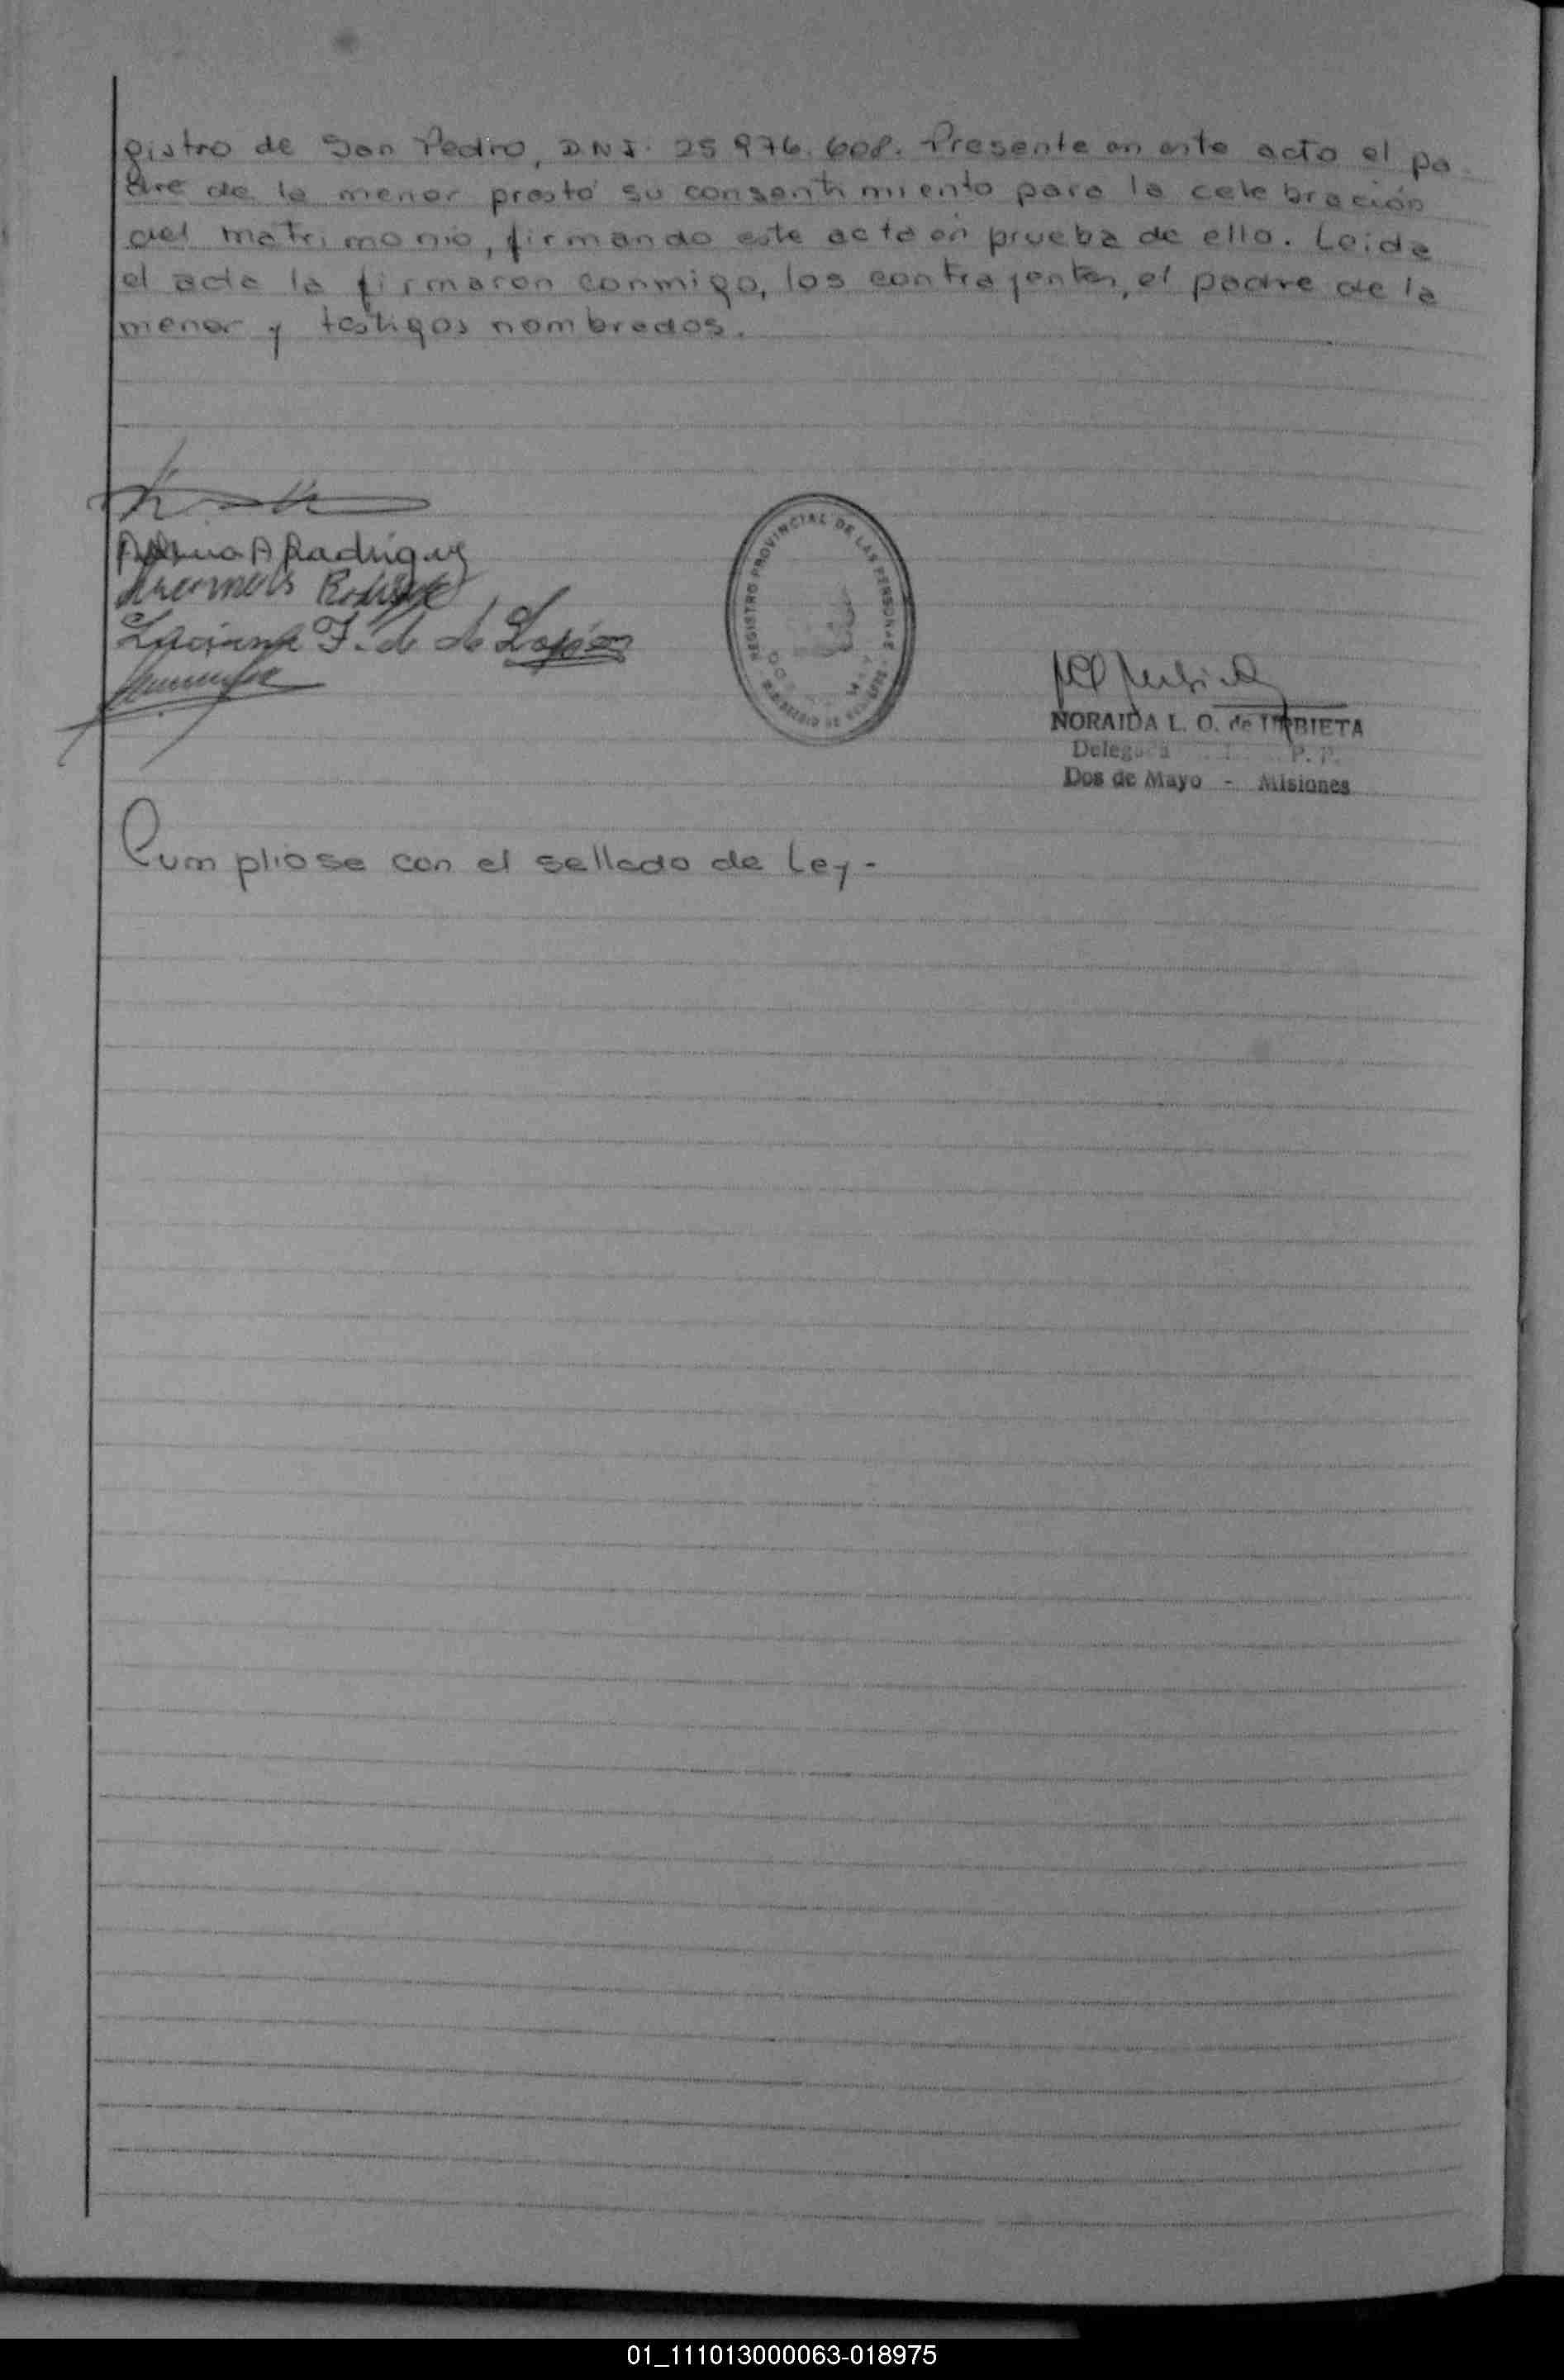 gistro de San Pedro, D.N.I. 25 976.608. Presente en este acto el pa-
dre de la menor prestó su consentimiento para la celebración
del matrimonio, firmando este acta en prueba de ella. Leida
el acta la firmaron conmigo, los contrayentes, el padre de la
menor y testigos nombrados.
A Rodriguez
REGISTRO PROVINCIAL DE LAS PERSONAS
NORAIDA L. O. de URBIETA
Delegada P. P.
Dos de Mayo - Misiones
Cumpliose con el sellado de Ley-
01_111013000063-018975